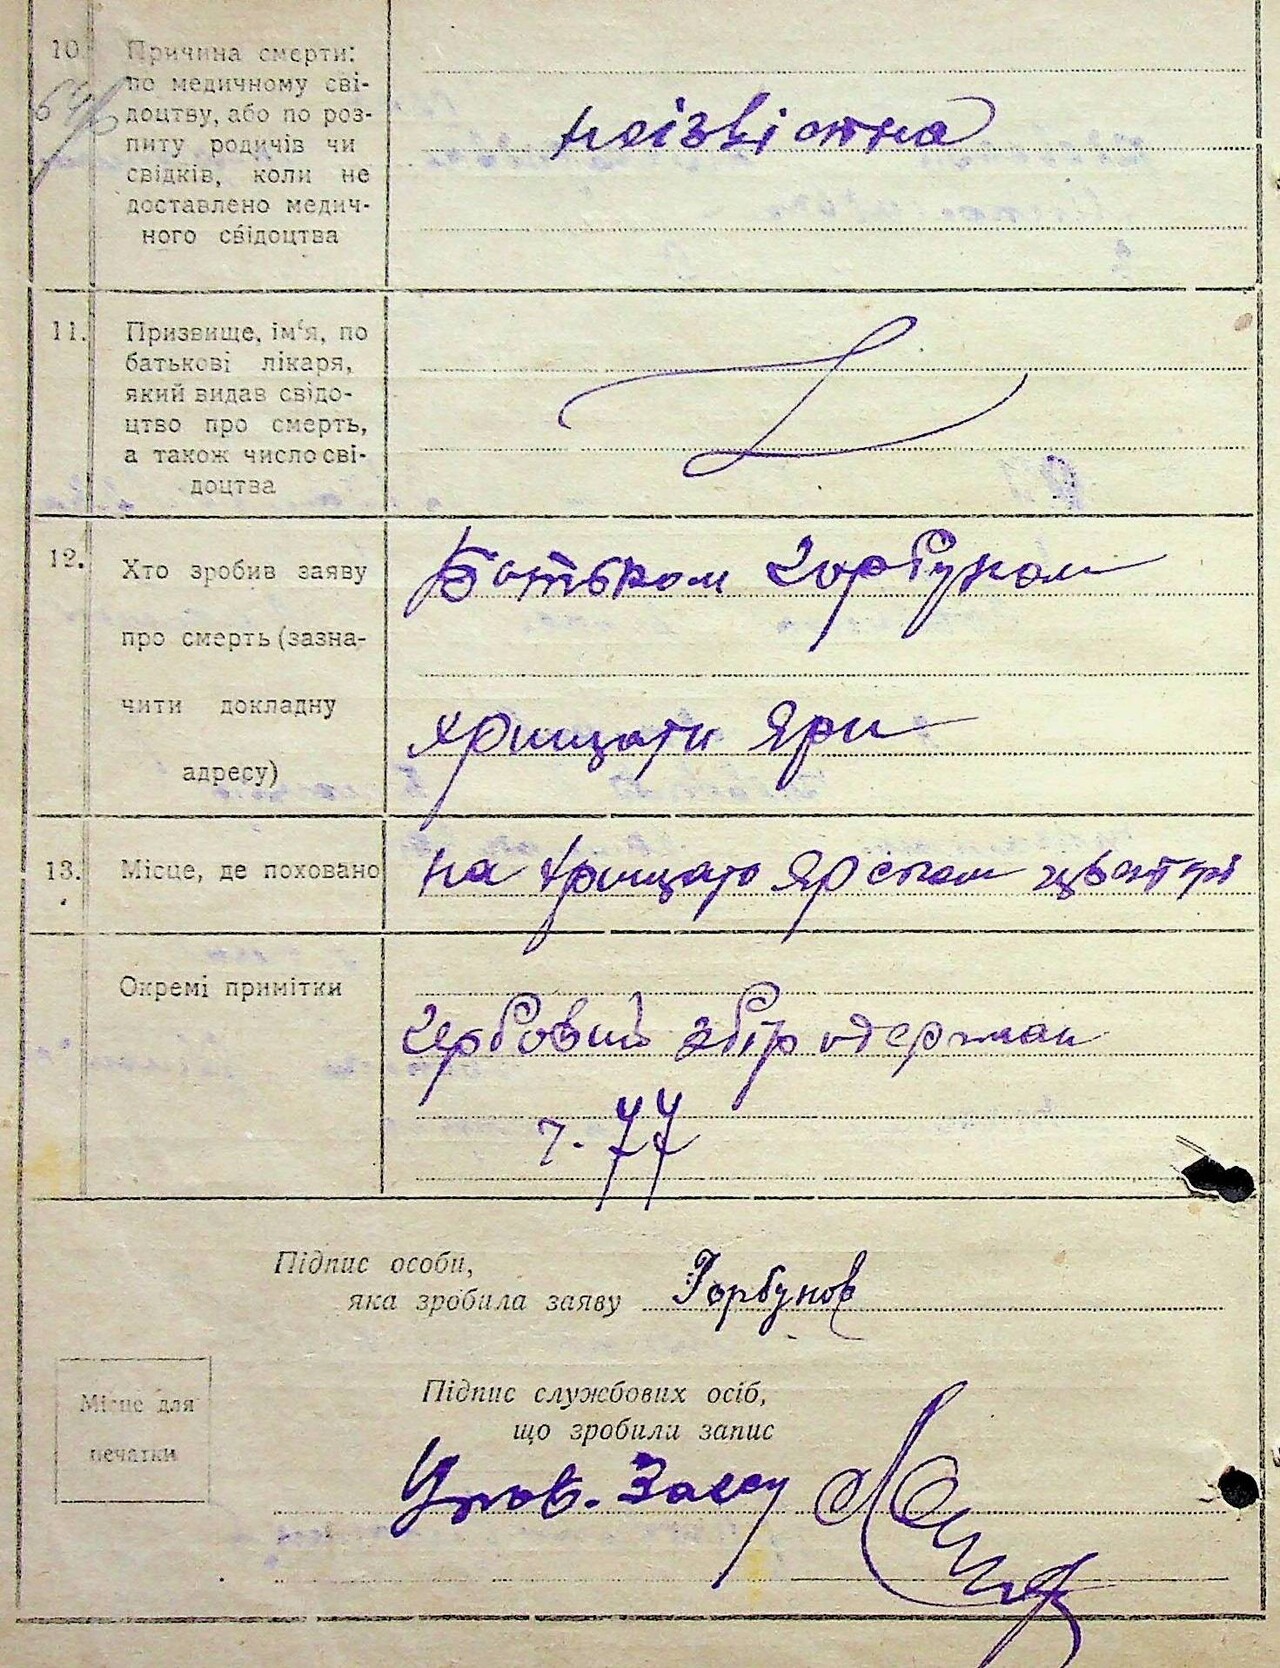 10. Причина смерти:
по медичному сві-
доцтву, або по роз-
питу родичів чи
свідків, коли не
доставлено медич-
ного свідоцтва
неізвістна
11. Призвище, ім‘я, по
батькові лікаря,
який видав свідо-
цтво про смерть,
а також число сві-
доцтва
12. Хто зробив заяву
про смерть (зазна-
чити докладну
адресу)
Батьком Горбуном
Хрищати Яри
13. Місце, де поховано
на Хрищато Ярском цвинтрі
Окремі примітки
Гербовий збір одержан
ч. 77
Підпис особи,
яка зробила заяву Горбунов
Місце для
печатки
Підпис службових осіб,
що зробили запис